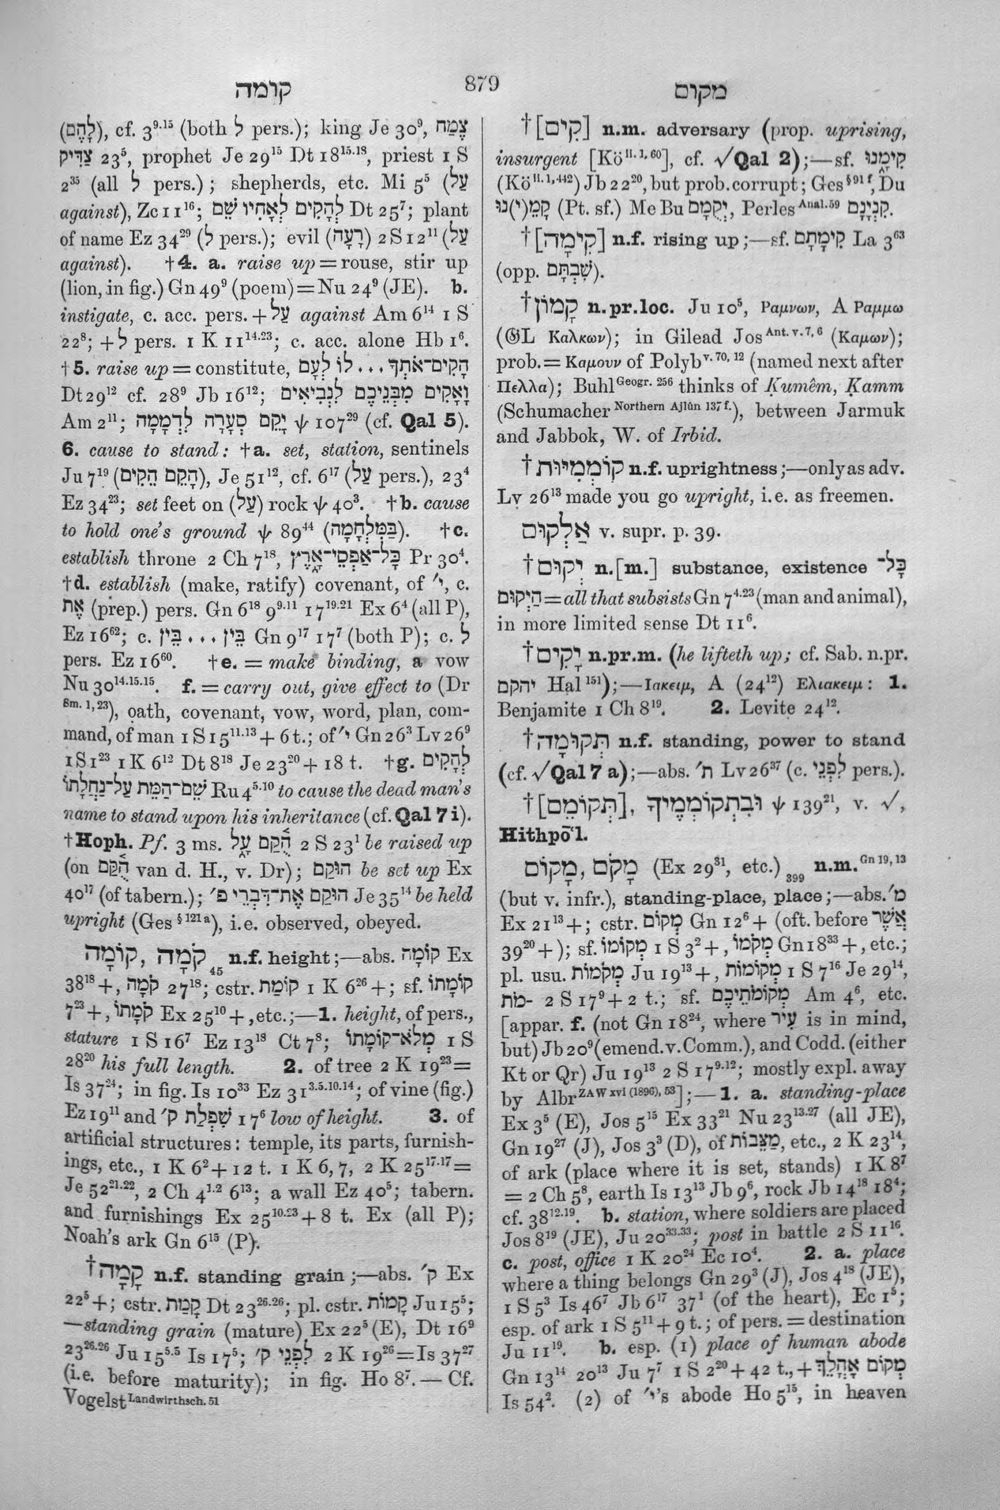 קומה
879
מקום
(לָהֶם), cf. 3⁹·¹⁵ (both לְ pers.); king Je 30⁹, צֶמַח
צַדִּיק 23⁵, prophet Je 29¹⁵ Dt 18¹⁵·¹⁸, priest 1 S
2³⁵ (all לְ pers.); shepherds, etc. Mi 5⁵ (עַל
against), Zc 11¹⁶; לְהָקִים לְאָחִיו שֵׁם Dt 25⁷; plant
of name Ez 34²⁹ (לְ pers.); evil (רָעָה) 2 S 12¹¹ (עַל
against). †4. a. raise up = rouse, stir up
(lion, in fig.) Gn 49⁹ (poem) = Nu 24⁹ (JE). b.
instigate, c. acc. pers. + עַל against Am 6¹⁴ 1 S
22⁸; + לְ pers. 1 K 11¹⁴·²³; c. acc. alone Hb 1⁶.
†5. raise up = constitute, הָקִים־אֹתְךָ ... לוֹ לְעָם
Dt 29¹² cf. 28⁹ Jb 16¹²; וָאָקִים מִבְּנֵיכֶם לִנְבִיאִים
Am 2¹¹; יָקֵם סְעָרָה לִדְמָמָה ψ 107²⁹ (cf. Qal 5).
6. cause to stand: †a. set, station, sentinels
Ju 7¹⁹ (הָקֵם הֵקִים), Je 51¹², cf. 6¹⁷ (עַל pers.), 23⁴
Ez 34²³; set feet on (עַל) rock ψ 40³. †b. cause
to hold one's ground ψ 89⁴⁴ (בַּמִּלְחָמָה). †c.
establish throne 2 Ch 7¹⁸, כָּל־אַפְסֵי־אָרֶץ Pr 30⁴.
†d. establish (make, ratify) covenant, of י׳, c.
אֶת (prep.) pers. Gn 6¹⁸ 9⁹·¹¹ 17¹⁹·²¹ Ex 6⁴ (all P),
Ez 16⁶²; c. בֵּין ... בֵּין Gn 9¹⁷ 17⁷ (both P); c. לְ
pers. Ez 16⁶⁰. †e. = make binding, a vow
Nu 30¹⁴·¹⁵·¹⁵. f. = carry out, give effect to (Dr
Sm. 1, 23), oath, covenant, vow, word, plan, com-
mand, of man 1 S 15¹¹·¹³ + 6 t.; of י׳ Gn 26³ Lv 26⁹
1 S 1²³ 1 K 6¹² Dt 8¹⁸ Je 23²⁰ + 18 t. †g. לְהָקִים
שֵׁם־הַמֵּת עַל־נַחֲלָתוֹ Ru 4⁵·¹⁰ to cause the dead man's
name to stand upon his inheritance (cf. Qal 7 i).
†Hoph. Pf. 3 ms. הֻקַם עָל 2 S 23¹ be raised up
(on הֻקַּם van d. H., v. Dr); הוּקַם be set up Ex
40¹⁷ (of tabern.); הוּקַם אֶת־דִּבְרֵי פ׳ Je 35¹⁴ be held
upright (Ges § 121 a), i.e. observed, obeyed.
קֹמָה, קוֹמָה 45 n.f. height;—abs. קוֹמָה Ex
38¹⁸ +, קֹמָה 27¹⁸; cstr. קוֹמַת 1 K 6²⁶ +; sf. קוֹמָתוֹ
7²³ +, קֹמָתוֹ Ex 25¹⁰ +, etc.;—1. height, of pers.,
stature 1 S 16⁷ Ez 13¹⁸ Ct 7⁸; מְלֹא־קוֹמָתוֹ 1 S
28²⁰ his full length. 2. of tree 2 K 19²³ =
Is 37²⁴; in fig. Is 10³³ Ez 31³·⁵·¹⁰·¹⁴; of vine (fig.)
Ez 19¹¹ and שִׁפְלַת ק׳ 17⁶ low of height. 3. of
artificial structures: temple, its parts, furnish-
ings, etc., 1 K 6² + 12 t. 1 K 6, 7, 2 K 25¹⁷·¹⁷ =
Je 52²¹·²², 2 Ch 4¹·² 6¹³; a wall Ez 40⁵; tabern.
and furnishings Ex 25¹⁰·²³ + 8 t. Ex (all P);
Noah's ark Gn 6¹⁵ (P).
†קָמָה n.f. standing grain;—abs. ק׳ Ex
22⁵ +; cstr. קָמַת Dt 23²⁶·²⁶; pl. cstr. קָמוֹת Ju 15⁵;
—standing grain (mature) Ex 22⁵ (E), Dt 16⁹
23²⁶·²⁶ Ju 15⁵·⁵ Is 17⁵; לִפְנֵי ק׳ 2 K 19²⁶ = Is 37²⁷
(i.e. before maturity); in fig. Ho 8⁷.—Cf.
Vogelst Landwirthsch. 51
†[קִים] n.m. adversary (prop. uprising,
insurgent [Kö II. 1, 60], cf. √Qal 2);—sf. קִימָנוּ
(Kö II. 1, 442) Jb 22²⁰, but prob. corrupt; Ges § 91 f, Du
קָמֵ(י)נוּ (Pt. sf.) Me Bu יְקֻמָם, Perles Anal. 59 קִנְיָנָם.
†[קִימָה] n.f. rising up;—sf. קִימָתָם La 3⁶³
(opp. שִׁבְתָּם).
†קָמוֹן n.pr.loc. Ju 10⁵, Ραμνων, A Ραμμω
(𝔊L Καλκων); in Gilead Jos Ant. v. 7, 6 (Καμων);
prob. = Καμουν of Polyb v. 70, 12 (named next after
Πελλα); Buhl Geogr. 256 thinks of Ḳumêm, Ḳamm
(Schumacher Northern Ajlûn 137 f.), between Jarmuk
and Jabbok, W. of Irbid.
†קוֹמְמִיּוּת n.f. uprightness;—only as adv.
Lv 26¹³ made you go upright, i.e. as freemen.
אַלְקוּם v. supr. p. 39.
†יְקוּם n.[m.] substance, existence כָּל־
הַיְקוּם = all that subsists Gn 7⁴·²³ (man and animal),
in more limited sense Dt 11⁶.
†יָקִים n.pr.m. (he lifteth up; cf. Sab. n.pr.
יהקם Hal 151);—Ιακειμ, A (24¹²) Ελιακειμ: 1.
Benjamite 1 Ch 8¹⁹. 2. Levite 24¹².
†תְּקוּמָה n.f. standing, power to stand
(cf. √Qal 7 a);—abs. ת׳ Lv 26³⁷ (c. לִפְנֵי pers.).
†[תְּקוֹמֵם], וּבִתְקוֹמְמֶיךָ ψ 139²¹, v. √,
Hithpō‘l.
מָקוֹם, מָקֹם (Ex 29³¹, etc.) 399 n.m. Gn 19, 13
(but v. infr.), standing-place, place;—abs. מ׳
Ex 21¹³ +; cstr. מְקוֹם Gn 12⁶ + (oft. before אֲשֶׁר
39²⁰ +); sf. מְקוֹמוֹ 1 S 3² +, מְקֹמוֹ Gn 18³³ +, etc.;
pl. usu. מְקֹמוֹת Ju 19¹³ +, מְקוֹמוֹת 1 S 7¹⁶ Je 29¹⁴,
־מֹת 2 S 17⁹ + 2 t.; sf. מְקוֹמֹתֵיכֶם Am 4⁶, etc.
[appar. f. (not Gn 18²⁴, where עִיר is in mind,
but) Jb 20⁹ (emend. v. Comm.), and Codd. (either
Kt or Qr) Ju 19¹³ 2 S 17⁹·¹²; mostly expl. away
by Albr ZAW xvi (1896), 53];—1. a. standing-place
Ex 3⁵ (E), Jos 5¹⁵ Ex 33²¹ Nu 23¹³·²⁷ (all JE),
Gn 19²⁷ (J), Jos 3³ (D), of מַצֵּבוֹת, etc., 2 K 23¹⁴,
of ark (place where it is set, stands) 1 K 8⁷
= 2 Ch 5⁸, earth Is 13¹³ Jb 9⁶, rock Jb 14¹⁸ 18⁴;
cf. 38¹²·¹⁹. b. station, where soldiers are placed
Jos 8¹⁹ (JE), Ju 20³³·³³; post in battle 2 S 11¹⁶.
c. post, office 1 K 20²⁴ Ec 10⁴. 2. a. place
where a thing belongs Gn 29³ (J), Jos 4¹⁸ (JE),
1 S 5³ Is 46⁷ Jb 6¹⁷ 37¹ (of the heart), Ec 1⁵;
esp. of ark 1 S 5¹¹ + 9 t.; of pers. = destination
Ju 11¹⁹. b. esp. (1) place of human abode
Gn 13¹⁴ 20¹³ Ju 7⁷ 1 S 2²⁰ + 42 t., + מְקוֹם אָהֳלֵךְ
Is 54². (2) of י׳'s abode Ho 5¹⁵, in heaven